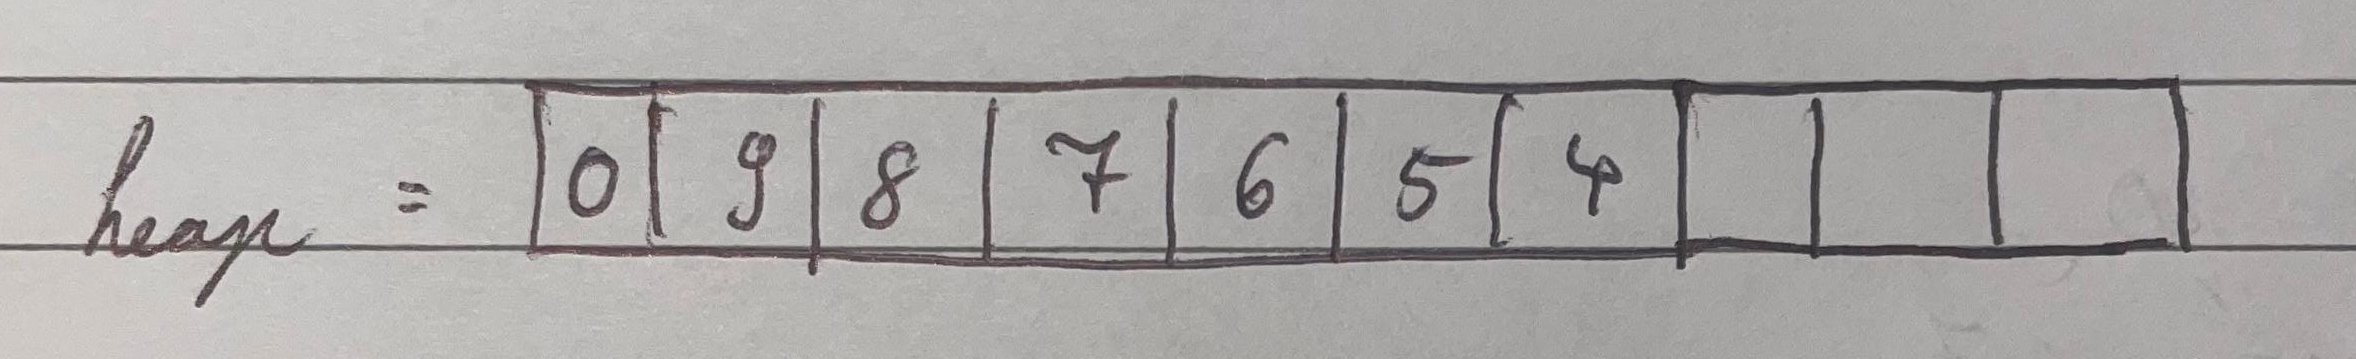 heap = 0 9 8 7 6 5 4